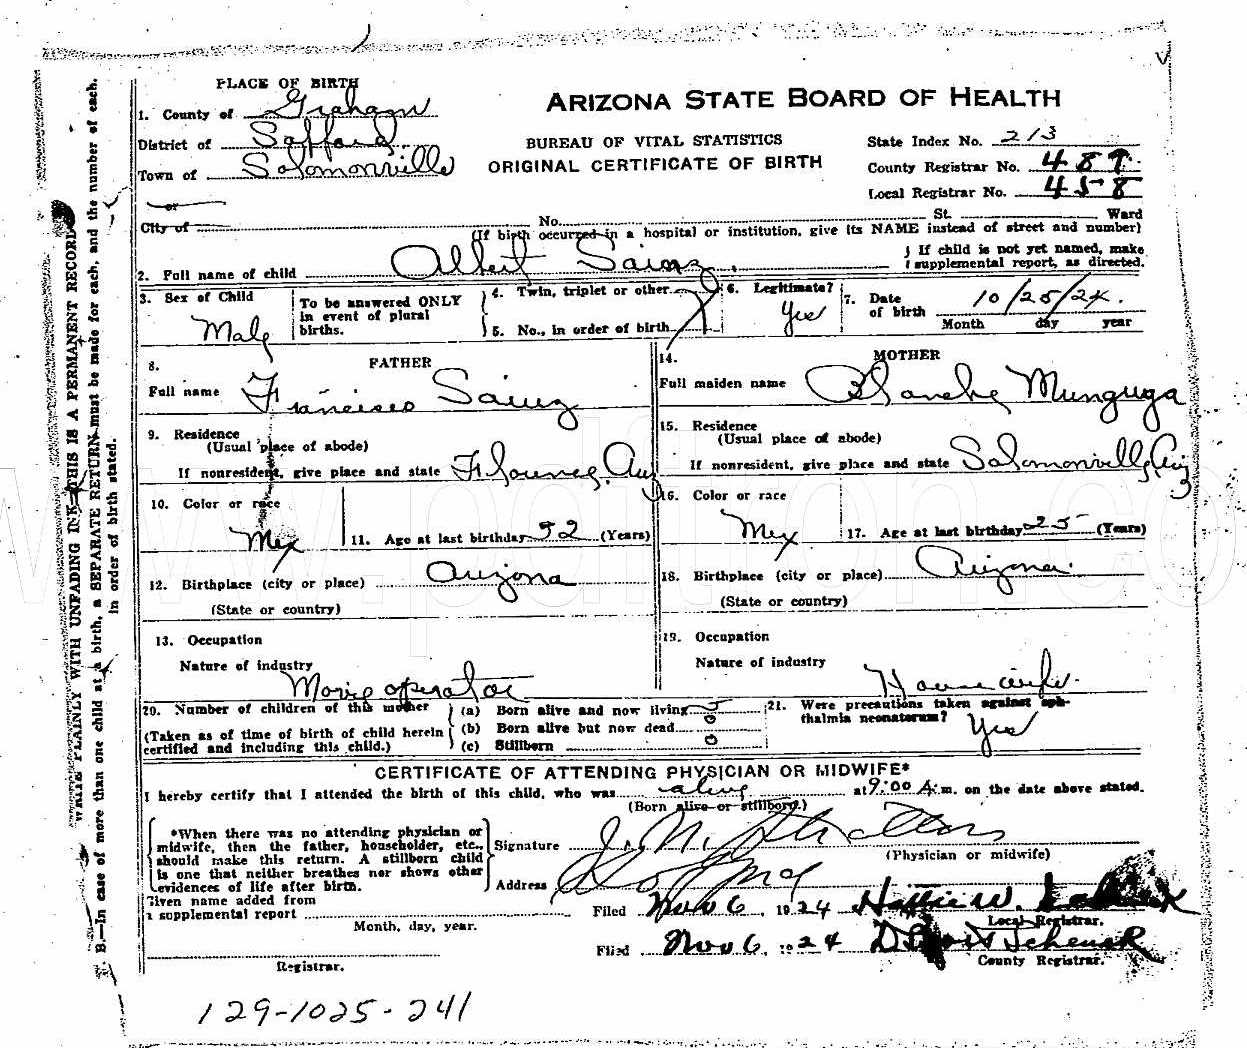 PLACE OF BIRTH
1. County of Graham
District of Safford
Town of Solomonville
or
City of
ARIZONA STATE BOARD OF HEALTH
BUREAU OF VITAL STATISTICS
ORIGINAL CERTIFICATE OF BIRTH
State Index No. 213
County Registrar No. 489
Local Registrar No. 458
No. St. Ward
(If birth occurred in a hospital or institution, give its NAME instead of street and number)
2. Full name of child Albert Sainz
{ If child is not yet named, make
supplemental report, as directed.
3. Sex of Child Male
To be answered ONLY
in event of plural
births.
4. Twin, triplet or other
5. No., in order of birth
6. Legitimate? Yes
7. Date
of birth 10/25/24.
Month day year
8. FATHER
Full name Francisco Sainz
9. Residence
(Usual place of abode)
If nonresident, give place and state Florence, Ariz
10. Color or race Mex
11. Age at last birthday 32 (Years)
12. Birthplace (city or place) Arizona
(State or country)
13. Occupation
Nature of industry
Movie operator
14. MOTHER
Full maiden name Blanche Munguga
15. Residence
(Usual place of abode)
If nonresident, give place and state Solomonville, Ariz
16. Color or race Mex
17. Age at last birthday 25 (Years)
18. Birthplace (city or place) Arizona
(State or country)
19. Occupation
Nature of industry
Housewife.
20. Number of children of this mother
(Taken as of time of birth of child herein
certified and including this child.)
(a) Born alive and now living 5
(b) Born alive but now dead 0
(c) Stillborn 0
21. Were precautions taken against oph-
thalmia neonatorum? Yes
CERTIFICATE OF ATTENDING PHYSICIAN OR MIDWIFE*
I hereby certify that I attended the birth of this child, who was alive at 9:00 A.m. on the date above stated.
(Born alive or stillborn.)
*When there was no attending physician or
midwife, then the father, householder, etc.,
should make this return. A stillborn child
is one that neither breathes nor shows other
evidences of life after birth.
Signature J. N. Stratton
(Physician or midwife)
Address Safford
Given name added from
a supplemental report
Month, day, year.
Registrar.
Filed Nov 6, 1924 Hattie W.
Local Registrar.
Filed Nov 6, 1924
County Registrar.
129-1025-241
WRITE PLAINLY WITH UNFADING INK—THIS IS A PERMANENT RECORD
N. B.—In case of more than one child at a birth, a SEPARATE RETURN must be made for each, and the number of each,
in order of birth stated.